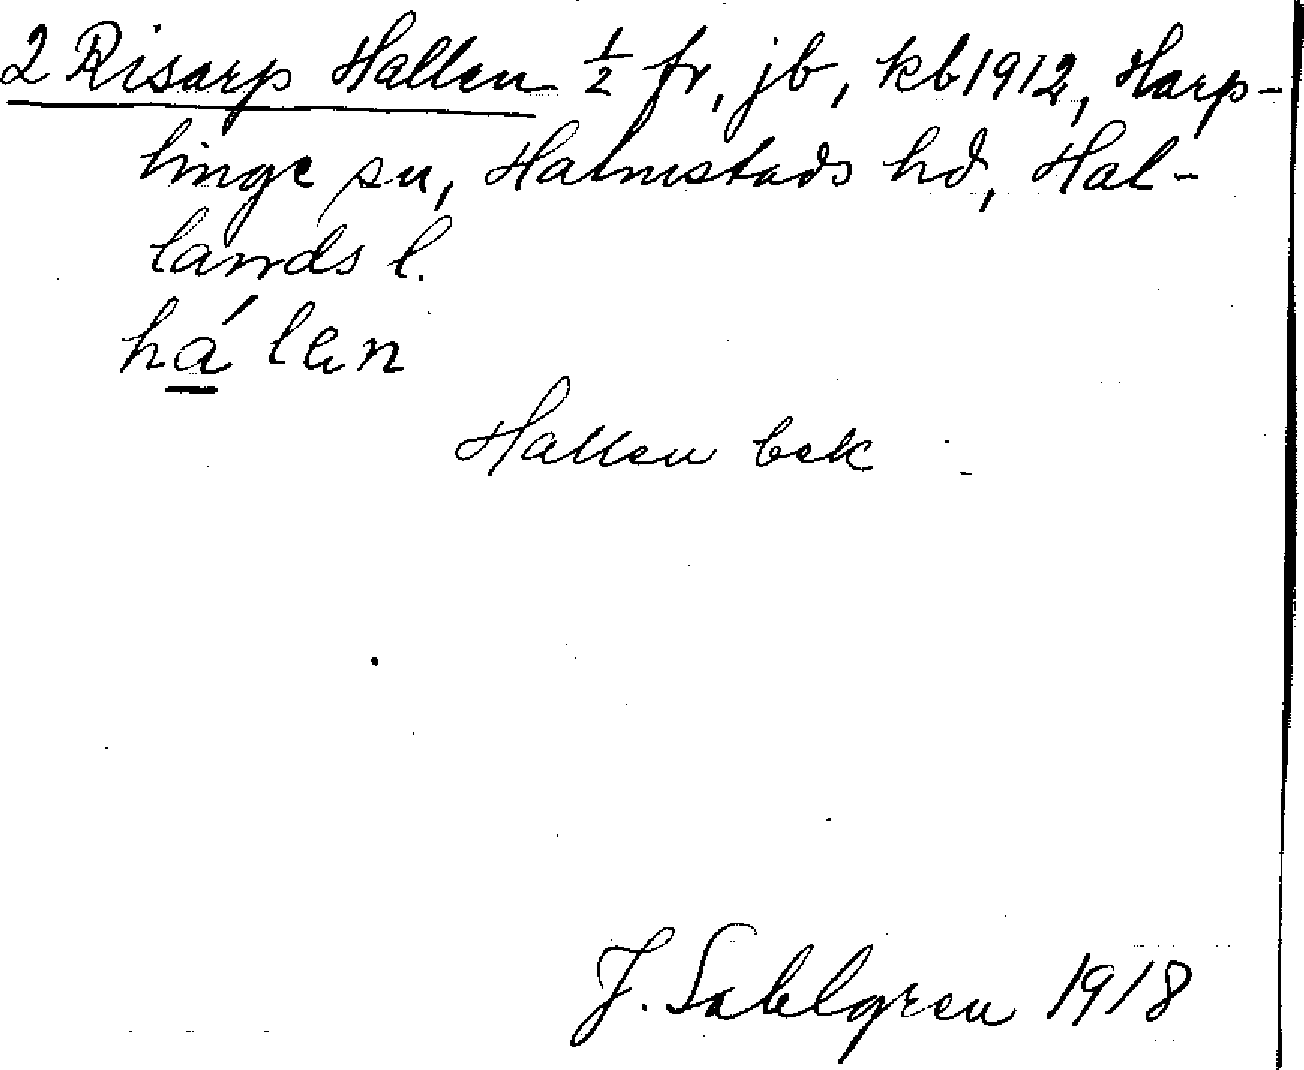 2 Risarp Hallen ½ fr, jb, kb 1912, Harp-
linge sn, Halmstads hd, Hal-
lands l.
há len
Hallen bek
J. Sahlgren 1918